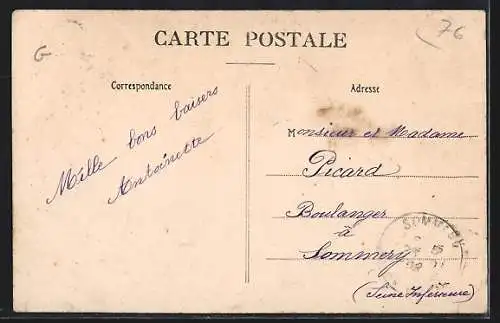 G
76
CARTE POSTALE
Correspondance
Adresse
Mille bons baisers
Antoinette
Monsieur et Madame
Picard
Boulanger
à
Sommery
(Seine Inférieure)
SOMMERY